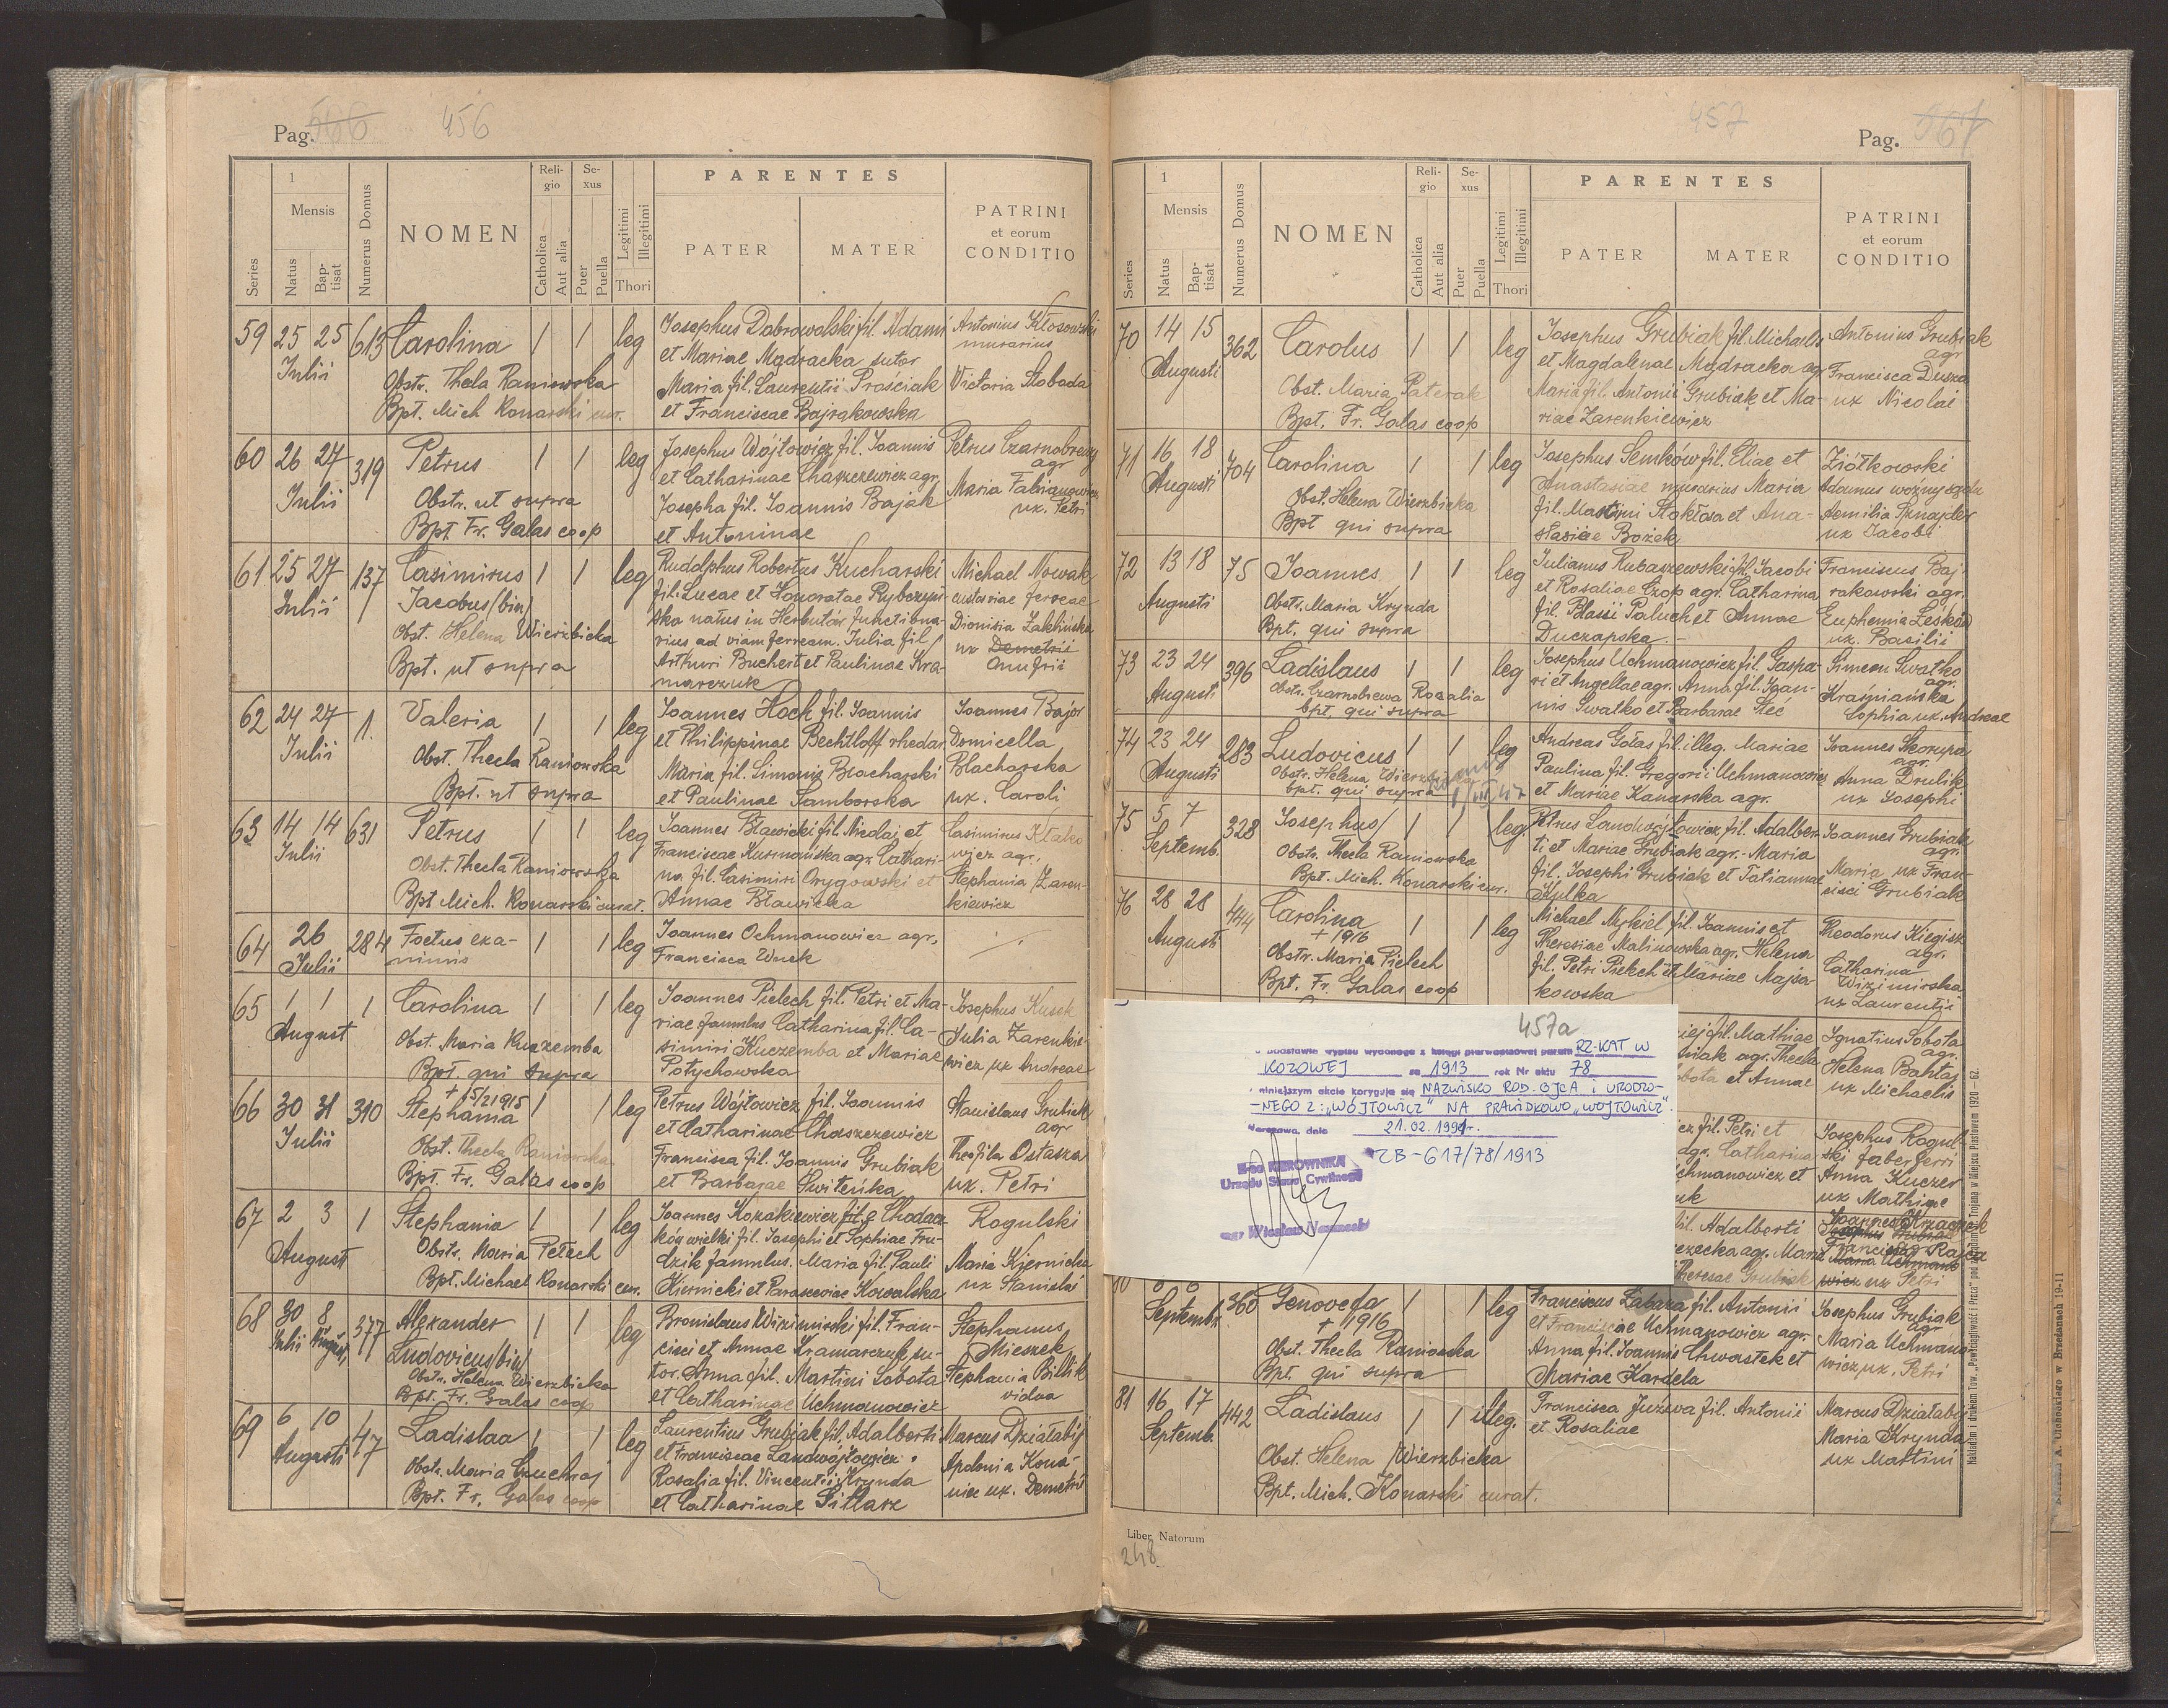 Pag. 566 456
1
Mensis
Series
Natus
Baptisat
Numerus Domus
NOMEN
Religio
Catholica
Aut alia
Sexus
Puer
Puella
Legitimi
Illegitimi
Thori
PARENTES
PATER
MATER
PATRINI
et eorum
CONDITIO
59 25 25 613 Carolina 1 1 leg Josephus Dabrowolski fil. Adami Antonius Kłosowski
Julii et Mariae Mądracka sutor murarius
Obstr. Thecla Raniowska Maria fil. Laurentii Prościak Victoria Słobada
Bpt. Mich Konarski cur. et Franciscae Bajrakowska
60 26 27 319 Petrus 1 1 leg Josephus Wójtowicz fil. Joannis Petrus
Julii et Catharinae Chaszczewicz agr. agr
Obstr. ut supra Josepha fil. Joannis Bajak Maria Fabianowicz
Bpt Fr. Galas coop et Antoninae ux. Petri
61 25 27 137 Casimirus 1 1 leg Rudolphus Robertus Kucharski Michael Nowak
Julii Jacobus (bin) fil. Lucae et Honoratae custos viae ferreae
Obst. Helena Wierzbicka ska natus in Herbutów functiona- Dionisia
Bpt. ut supra rius ad viam ferream. Julia fil ux Demetrii
Arthuri Buchert et Paulinae Kra- Onufrii
marczuk
62 24 27 1. Valeria 1 1 leg Joannes Hoch fil. Joannis Joannes Bajor
Julii et Philippinae Bechtloff rhedar. Domicella
Obst. Thecla Raniowska Maria fil. Simonis Blacharski Blacharska
Bpt. ut supra et Paulinae Samborska ux. Caroli
63 14 14 631 Petrus 1 1 leg Joannes Bławicki fil. Nicolaj et Casimirus
Julii Franciscae agr. Cathari- wicz agr.
Obst. Thecla Raniowska na fil. Casimiri Orygowski et Stephania Zaren-
Bpt Mich. Konarski curat. Annae Bławicka kiewicz
64 26 284 Foetus exa- 1 1 leg Joannes Ochmanowicz agr.
Julii nimis Francisca Wnek
65 1 1 1 Carolina 1 1 leg Joannes Pielech fil. Petri et Ma- Josephus Kusek
August riae famulus Catharina fil. Ca- Julia Zarenkie-
Obst. Maria Kuczemba simiri Kuczemba et Mariae wicz ux Andreae
Bpt. qui supra Potychowska
66 30 31 310 Stephania † 15/2 1915 1 1 leg Petrus Wójtowicz fil. Joannis Stanislaus Grubiak
Julii et Catharinae Chaszczewicz agr
Obst. Thecla Raniowska Francisca fil. Joannis Grubiak Theofila Ostasza
Bpt. Fr. Galas coop et Barbarae Switeńka ux. Petri
67 2 3 1 Stephania 1 1 leg Joannes Kozakiewicz fil. e Chodacz- Rogulski
August ków wielki fil. Josephi et Sophiae Fru-
Obstr. Maria Pełech dzik famulus. Maria fil. Pauli Maria Kiernicka
Bpt. Michael Konarski cur. Kiernicki et Parasceviae Kowalska ux Stanislai
68 30 8 377 Alexander 1 1 leg Bronislaus Wizimirski fil. Fran- Stephanus
Julii August Ludovicus (bin) cisci et Annae Kramarczuk su- Mieszek
Obstr. Helena Wierzbicka tor. Anna fil. Martini Sobota Stephania Bilik
Bpt. Fr. Galas coop et Catharinae Uchmanowicz vidua
69 6 10 47 Ladislaa 1 1 leg Laurentius Grubiak fil. Adalberti Marcus Działabij
Augusti et Franciscae Landwójtowicz.
Obstr. Maria Rosalia fil. Vincentii Krynda Apolonia Kona-
Bpt. Fr. Galas coop et Catharinae Sitlarz ux. Demetrii
457 Pag. 567
1
Mensis
Series
Natus
Baptisat
Numerus Domus
NOMEN
Religio
Catholica
Aut alia
Sexus
Puer
Puella
Legitimi
Illegitimi
Thori
PARENTES
PATER
MATER
PATRINI
et eorum
CONDITIO
70 14 15 362 Carolus 1 1 leg Josephus Grubiak fil. Michaelis Antonius Grubiak
Augusti et Magdalenae Mądracka agr agr
Obst. Maria Paterak Maria fil. Antonii Grubiak et Ma- Francisca Dusza
Bpt. Fr. Galas coop riae Zarenkiewicz ux Nicolai
71 16 18 704 Carolina 1 1 leg Josephus Semków fil. Eliae et Ziółkowski
Augusti Anastasiae murarius Maria Adamus woźny sądu
Obst. Helena Wierzbicka fil. Martini Stokłosa et Ana- Aemilia Sznajder
Bpt qui supra stasiae Bożek ux Jacobi
72 13 18 75 Joannes 1 1 leg Julianus Rubaszewski fil. Jacobi Franciscus Baj-
Augusti et Rosaliae Czop agr. Catharina rakowski agr.
Obstr. Maria Krynda fil. Blasii Paluch et Annae Euphemia Leśków
Bpt. qui supra Duczapska.- ux. Basilii
73 23 24 396 Ladislaus 1 1 leg Josephus Uchmanowicz fil. Gaspa- Simeon Swatko
Augusti ri et Angellae agr. Anna fil. Joan- agr.
Obstr. Czarnobrewa Rozalia nis Swatko et Barbarae Steć Kraśniańska
bpt. qui supra Sophia ux. Andreae
74 23 24 283 Ludovicus 1 1 leg Andreas Gołas fil. illeg. Mariae Joannes Skorupa
Augusti agr.
Obstr. Helena Wierzbicka Paulina fil. Gregorii Uchmanowicz Anna Drulik
bpt. qui supra et Mariae Kanarska agr. ux Josephi
75 5 7 328 Josephus 1 1 leg Petrus Landwójtowicz fil. Adalber- Joannes Grubiak
Septemb. ti et Mariae Grubiak agr.- Maria agr.
Obstr. Thecla Raniowska fil. Josephi Grubiak et Tatiannae Maria ux Fran-
Bpt. Mich. Konarski cur. Kulka cisci Grubiak
76 28 28 444 Carolina 1 1 leg Michael Mykiel fil. Joannis et Theodorus Kiegisz
Augusti † 1916 Theresiae Malinowska agr. Helena agr.
Obstr. Maria Pielech fil. Petri Pielech et Mariae Majda- Catharina
Bpt. Fr. Galas coop kowska Wizimirska
ux Laurentii
457a
podstawie wypisu wydanego z księgi pierwopisowej parafii RZ-KAT W
KOZOWEJ za 1913 rok Nr aktu 78
niniejszym akcie koryguje się NAZWISKO ROD. OJCA i URODZO-
-NEGO Z: „WÓJTOWICZ" NA PRAWIDŁOWO „WOJTOWICZ".
Warszawa, dnia 21.02.1994r.
ZB-617/78/1913
Z-ca KIEROWNIKA
Urzędu Stanu Cywilnego
fil. Mathiae Ignatius Sobota
agr. Thecla agr.
et Annae Helena Bahtaj
ux Michaelis
fil. Petri et Josephus Rogul-
agr. Catharina ski faber ferri
chmanowicz et Anna Kuczer
ux Mathiae
fil. Adalberti
agr. Maria
Theresae Grubiak wicz ux Petri
80 360 Genovefa 1 1 leg Franciscus Labaza fil. Antonii Josephus Grubiak
Septemb. † 1916 et Franciscae Uchmanowicz agr. agr
Obst. Thecla Raniowska Anna fil. Joannis Chwastek et Maria Uchmano-
Bpt. qui supra Mariae Kardela wicz ux. Petri
81 16 17 442 Ladislaus 1 1 illeg. Francisca Juzwa fil. Antonii Marcus Działabij
Septemb. et Rosaliae Maria Krynda
Obst. Helena Wierzbicka ux Martini
Bpt. Mich. Konarski curat.
Liber Natorum
248